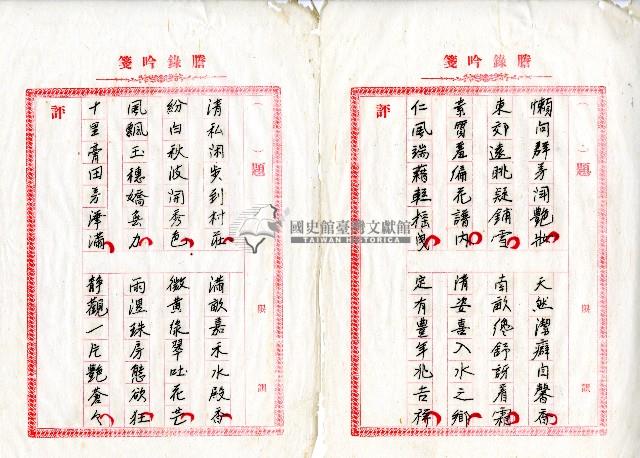 謄錄吟箋
（ ）題
限 韻
懶向群芳鬪艷妝
天然潔癖自馨香
東郊遠眺疑鋪雪
南畝纔舒訝看霜
素質羞偏花譜內
清姿喜入水之鄉
仁風端藉輕搖曳
定有豊年兆吉祥
評
謄錄吟箋
（ ）題
限 韻
清私閑步到村莊
滿畝嘉禾水殿香
紛白秋波開秀色
微黄綠翠吐花芒
風飄玉穗嬌無力
雨濕珠房態欲狂
十里膏田芳澤滿
靜觀一片艷蒼々
評
國史館臺灣文獻館
TAIWAN HISTORICA